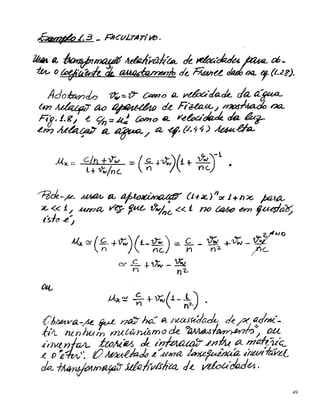 Exemplo 1.3 - FACULTATIVO.
Usar a transformação relativística de velocidades para ob-
ter o coeficiente de arrastamento de Fresnel dado na eq. (1.28).
Adotando v_w = v como a velocidade da água
em relação ao aparelho de Fizeau, mostrado na
Fig. 1.8, e c/n = u'_x como a velocidade da luz
em relação à água, a eq. (1.44) resulta
u_x = (c/n + v_w)/(1 + v_w/nc) = (c/n + v_w)(1 + v_w/nc)^-1 .
Pode-se usar a aproximação (1+x)^n ≃ 1+nx para
x << 1, uma vez que v_w/nc << 1 no caso em questão,
isto é,
u_x ≃ (c/n + v_w)(1 - v_w/nc) = c/n - v_w/n² + v_w - v_w²/nc
≃ c/n + v_w - v_w/n²
ou
u_x ≃ c/n + v_w(1 - 1/n²) .
Observa-se que não há a necessidade de se admi-
tir nenhum mecanismo de "arrastamento", ou
inventar teorias de interação entre a matéria
e o "éter". O resultado é uma conseqüência inevitável
da transformação relativística de velocidades.
49